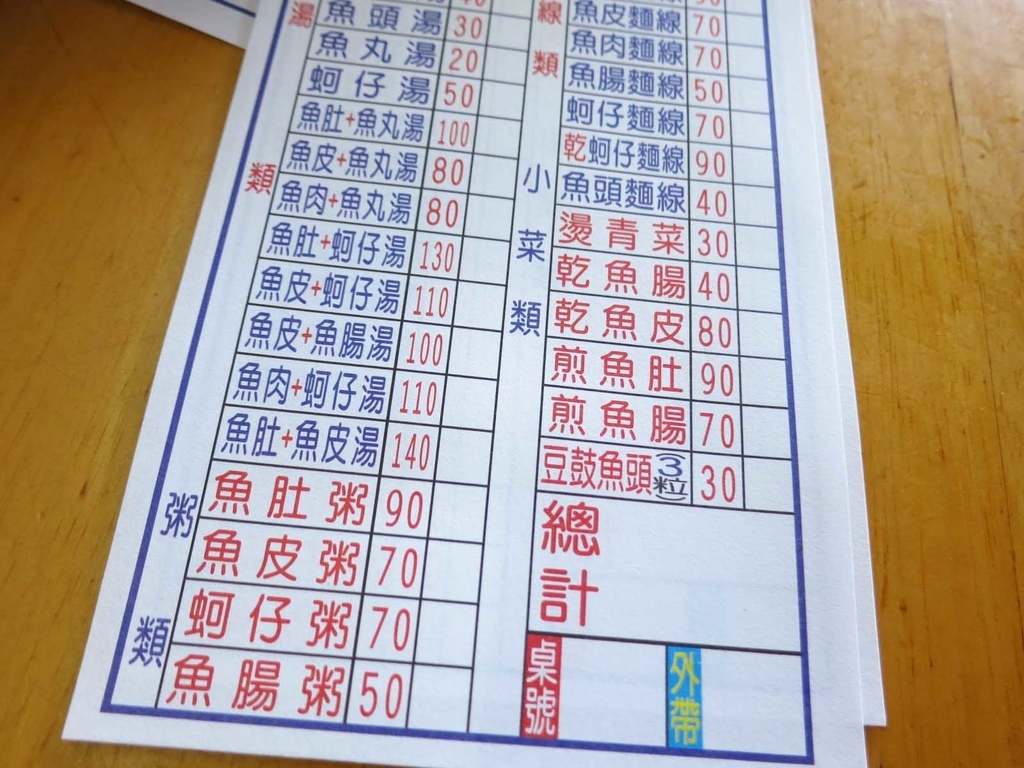 湯類
魚頭湯 30
魚丸湯 20
蚵仔湯 50
魚肚+魚丸湯 100
魚皮+魚丸湯 80
魚肉+魚丸湯 80
魚肚+蚵仔湯 130
魚皮+蚵仔湯 110
魚皮+魚腸湯 100
魚肉+蚵仔湯 110
魚肚+魚皮湯 140
粥類
魚肚粥 90
魚皮粥 70
蚵仔粥 70
魚腸粥 50
線類
魚皮麵線 70
魚肉麵線 70
魚腸麵線 50
蚵仔麵線 70
乾蚵仔麵線 90
魚頭麵線 40
小菜類
燙青菜 30
乾魚腸 40
乾魚皮 80
煎魚肚 90
煎魚腸 70
豆鼓魚頭(3粒) 30
總計
桌號
外帶